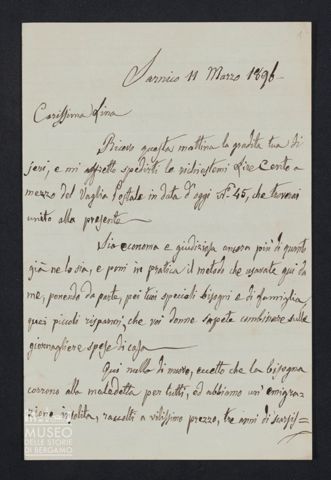 1
Sarnico 11 Marzo 1896
Carissima Lina
Ricevo questa mattina la gradita tua di
jeri, e mi affretto spedirti le richiestemi Lire Cento a
mezzo del Vaglia Postale in data d'oggi N.º 45, che troverai
unito alla presente
Sia economa e giudiziosa ancora più di quanto
già ne lo sia, e poni in pratica il metodo che usavate qui da
me, ponendo da parte, pei tuoi speciali bisogni e di famiglia
quei piccoli risparmi, che voi donne sapete combinare sulle
giornagliere spese di casa
Qui nulla di nuovo, eccetto che la bisogna
corrono alla maledetta per tutti, ed abbiamo un' emigra=
zione insolita, raccolti a vilissimo prezzo, tre anni di scarsis=
MUSEO
DELLE STORIE
DI BERGAMO